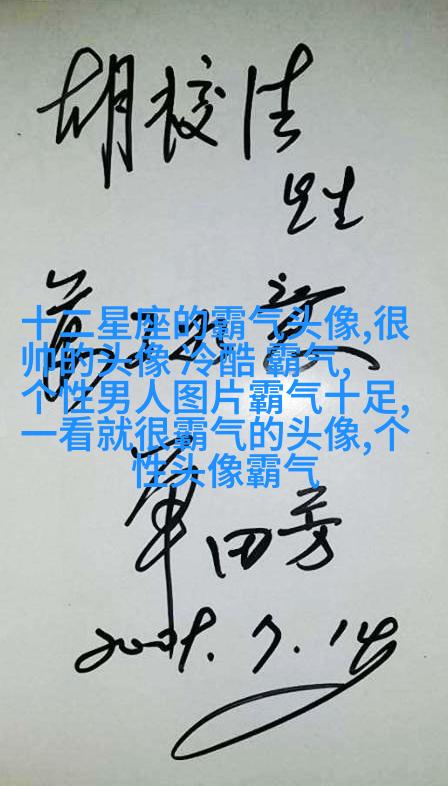 胡
先生
十二星座的霸气头像,很
帅的头像 冷酷 霸气,
个性男人图片霸气十足,
一看就很霸气的头像,个
性头像霸气
單田芳
7.14